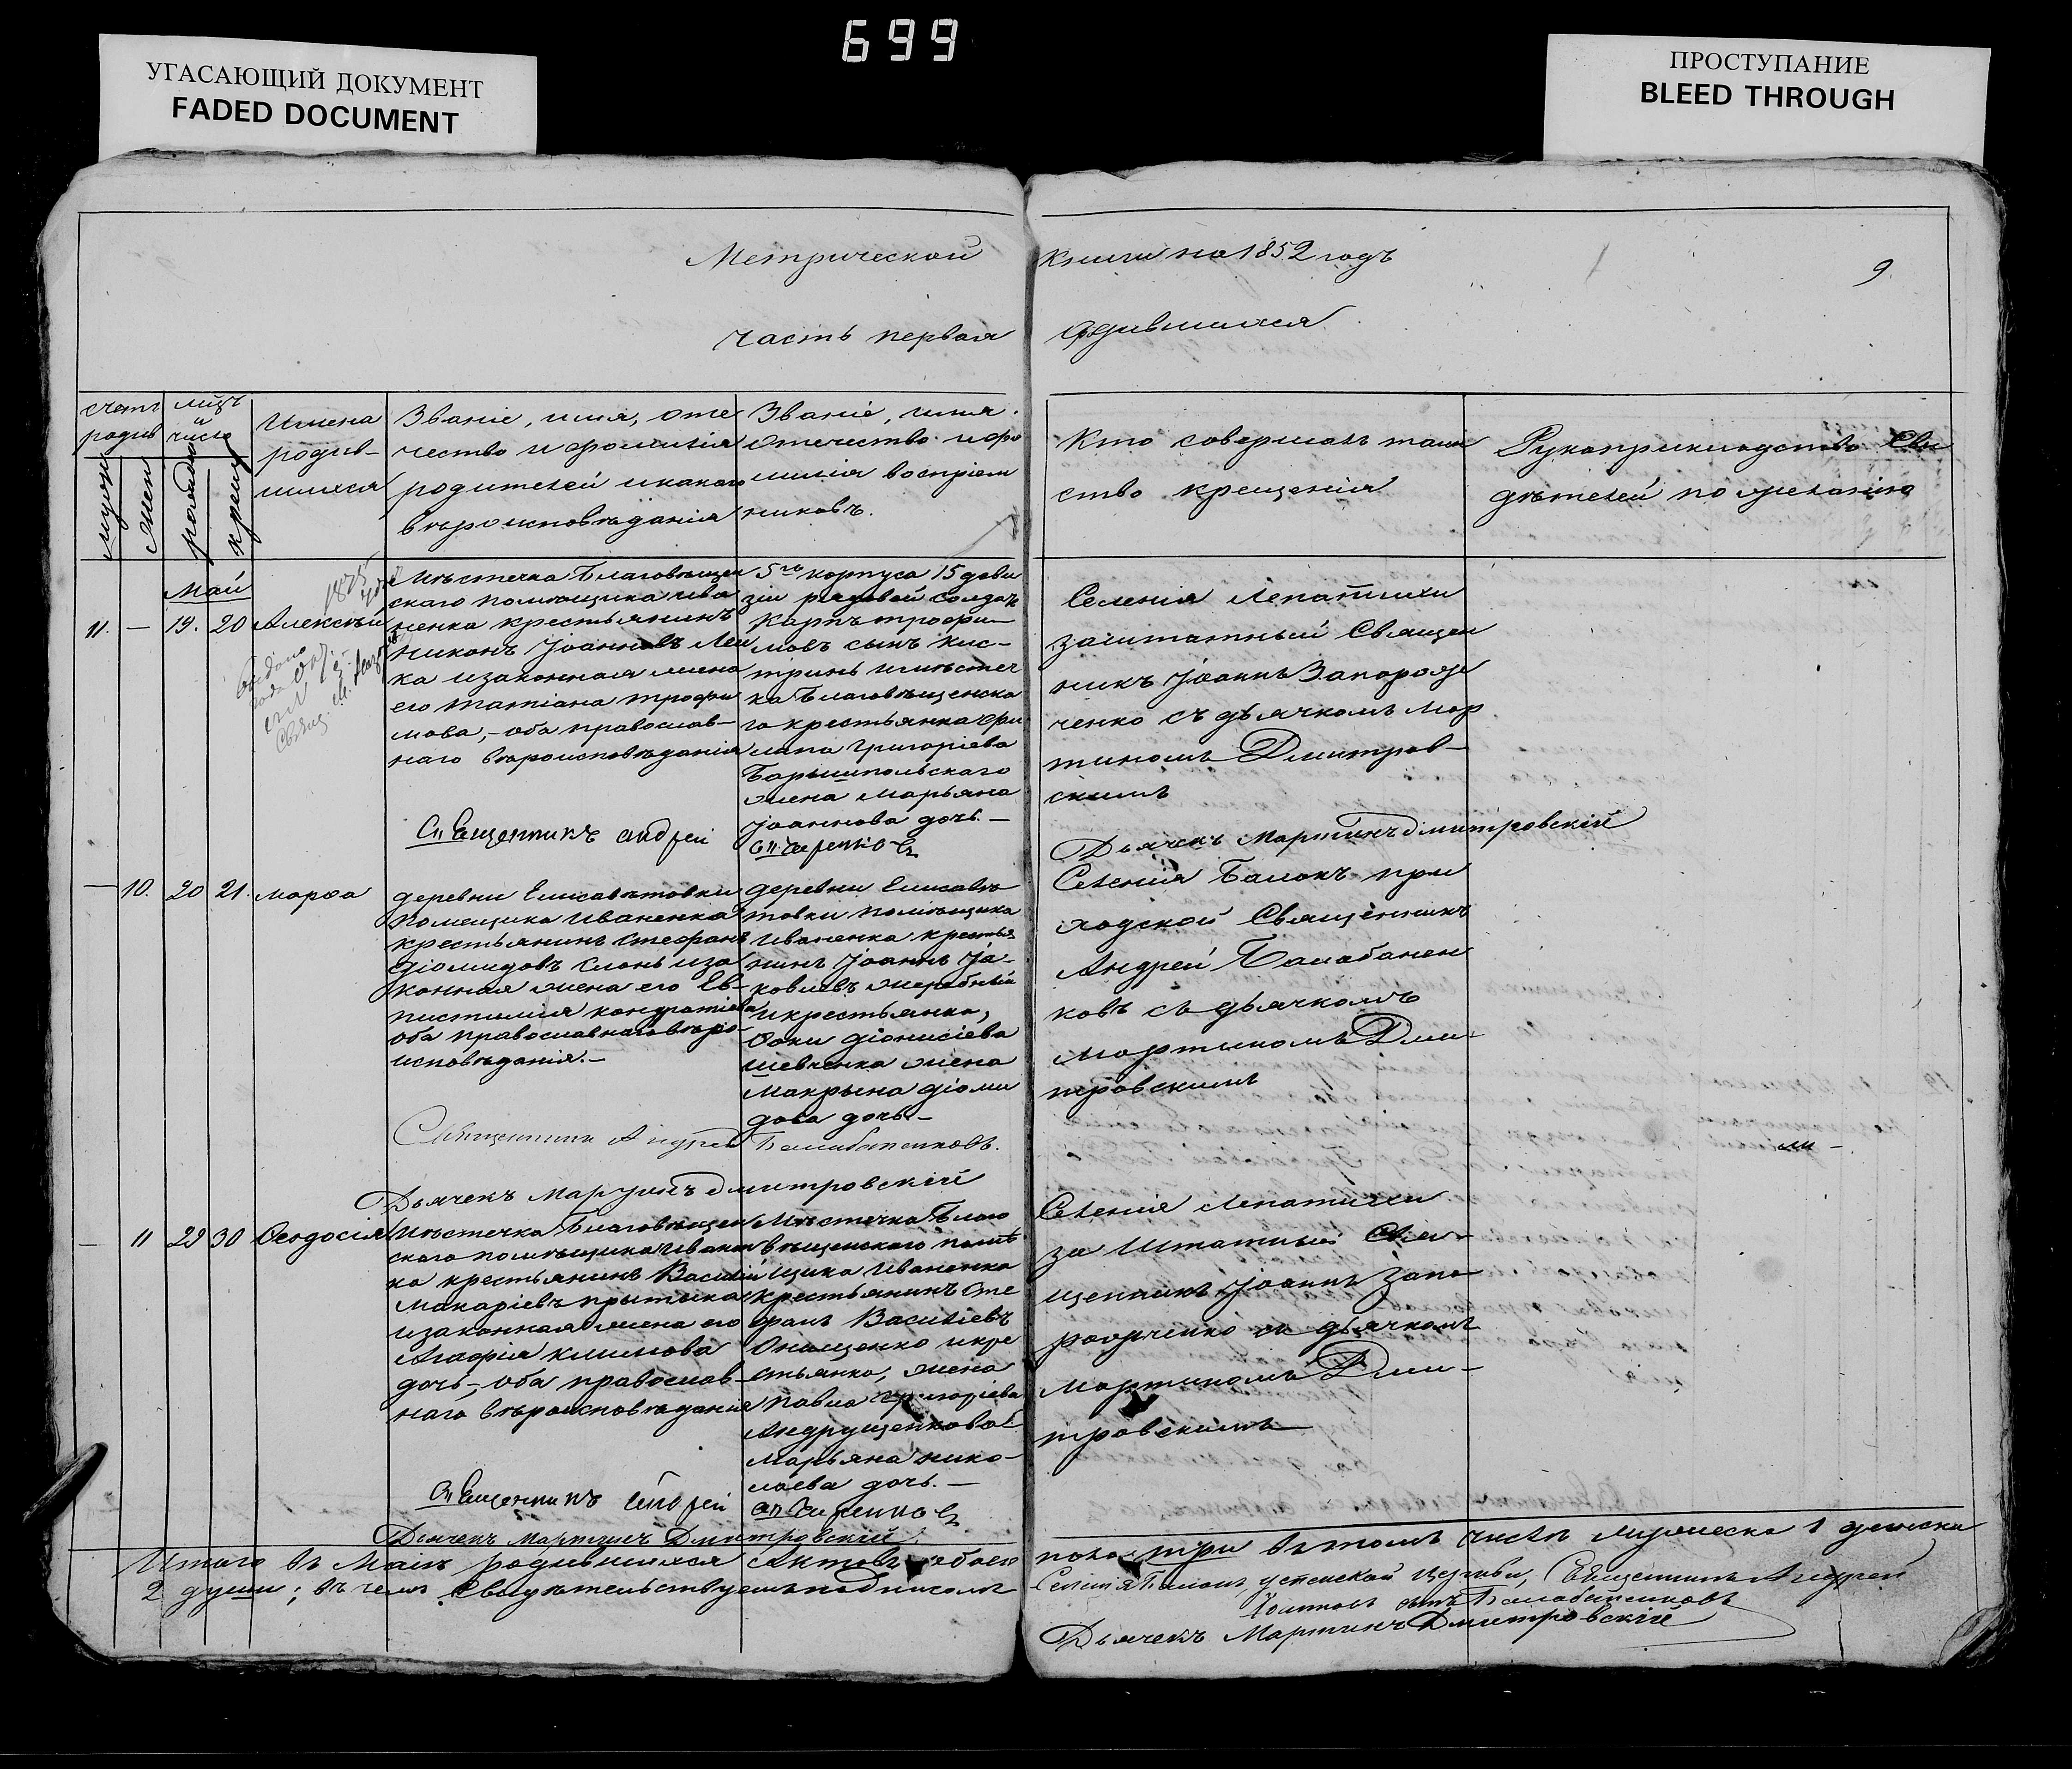 699
УГАСАЮЩИЙ ДОКУМЕНТ
FADED DOCUMENT
ПРОСТУПАНИЕ
BLEED THROUGH
Метрической книги на 1852 годъ
9
часть первая родившихся
счетъ родив
мужес
женс
мсцъ и число
рожден
крещен
Имена
родив-
шихся
Званіе, имя, оте
чество и фамилія
родителей и какого
вѣроисповѣданія
Званіе, имя
Отечество и фа
милія воспріем
никовъ.
Кто совершалъ таин
ство крещенія
Рукоприкладство Сви
дѣтелей по желанію
Май
11. — 19. 20 Алексѣй
Мѣстечка Благовѣщен
скаго помѣщика Ива
ненка крестьянинъ
Никонъ Іоанновъ
ка и законная жена
его Татіана Трофи
мова, - оба православ-
наго вѣроисповѣданія
5го корпуса 15 диви
зіи рядовой солдатъ
Карпъ Трофи-
мовъ сынъ
и мѣстеч
ка Благовѣщенска
го крестьянка
Григоріева
Барышпольскаго
жена Марьяна
Іоаннова дочь. —
Священникъ Андрей
Селенія Лепатихи
заштатный Священ
никъ Іоаннъ Запорож
ченко съ дьячкомъ Мар
тиномъ Дмитров-
скимъ
Дьячекъ Мартинъ Дмитровскій
— 10. 20 21. Марѳа
деревни Елисаветовки
помещика Иваненка
крестьянинъ Стефанъ
Діомидовъ Слонь и за
конная жена его Ев-
пистимія Кондратіева
оба православнаго вѣро-
исповѣданія. —
деревни Елисаве
товки помѣщика
Иваненка крестья
нинъ Іоаннъ Іа-
ковлевъ Жеребный
и крестьянка,
Фоки Діонисіева
Шевченка жена
Макрына Діоми
дова дочь —
Священникъ Андрей Балабаненковъ.
Дьячекъ Мартинъ Дмитровскій
Селенія Балокъ при
ходской Священникъ
Андрей Балабанен
ковъ съ дьячкомъ
Мартиномъ Дми-
тровскимъ
— 11 29 30 Ѳеодосія
Мѣстечка Благовѣщен
скаго помѣщика Иванен
ка крестьянинъ Василій
Макаріевъ Прытыка
и законная жена его
Агафія Климова
дочь —, оба православ-
наго вѣроисповѣданія
Мѣстечка Благо
вѣщенскаго помѣ
щика Иваненка
крестьянинъ Сте
фанъ Василіевъ
Онищенко и кре
стьянка, жена
Павла Григоріева
Андрущенкова
Марьяна Нико-
лаева дочь. —
Священникъ Андрей
Дьячекъ Мартинъ Дмитровскій
Селенія Лепатихи
за Штатный Свя-
щенникъ Іоаннъ Запо
рожченко съ дьячкомъ
Мартиномъ Дми-
тровскимъ
Итого въ Маѣ родившихся Актовъ обоего пола три въ томъ числѣ мужеска 1 женска
2 души; въ чемъ Свидѣтельствуемъ подписомъ Селенія Балокъ Успенской Церкви, Священникъ Андрей
сынъ Балабаненковъ
Дьячекъ Мартинъ Дмитровскій